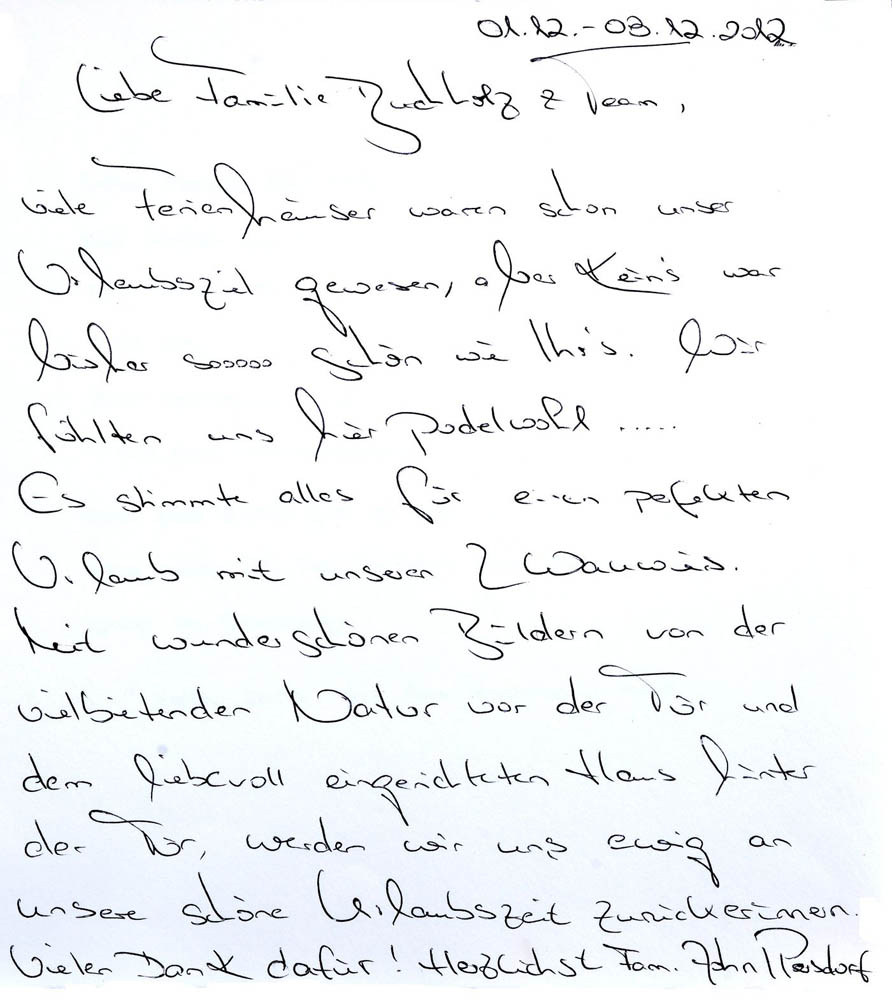 01.12.-03.12.2012
Liebe Familie Buchholz & Team,
viele Ferienhäuser waren schon unser
Urlaubsziel gewesen, aber Kein's war
bisher soooooo schön wie Ihr's. Wir
fühlten uns hier pudelwohl .....
Es stimmte alles für einen pefekten
Urlaub mit unseren 2 Wauwis.
Mit wunderschönen Bildern von der
vielbietenden Natur vor der Tür und
dem liebevoll eingerichteten Haus hinter
der Tür, werden wir uns ewig an
unsere schöne Urlaubszeit zurückerinnern.
Vielen Dank dafür! Herzlichst Fam. John